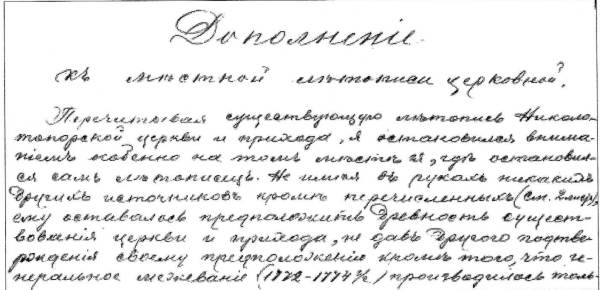 Дополненіе
къ мѣстной лѣтописи церковной.
Перечитывая существующую лѣтопись Николо-
топорской церкви и прихода, я остановился внима-
ніемъ особенно на томъ мѣстѣ ея, гдѣ остановил-
ся самъ лѣтописецъ. Не имѣя въ рукахъ никакихъ
другихъ источниковъ кромѣ перечисленныхъ (см.
ему оставалось предположить древность сущест-
вованія церкви и прихода, не давъ другого подтве-
рожденія своему предположенію кромѣ того, что ге-
неральное межеваніе (1772-1774 г.) производилось толь-